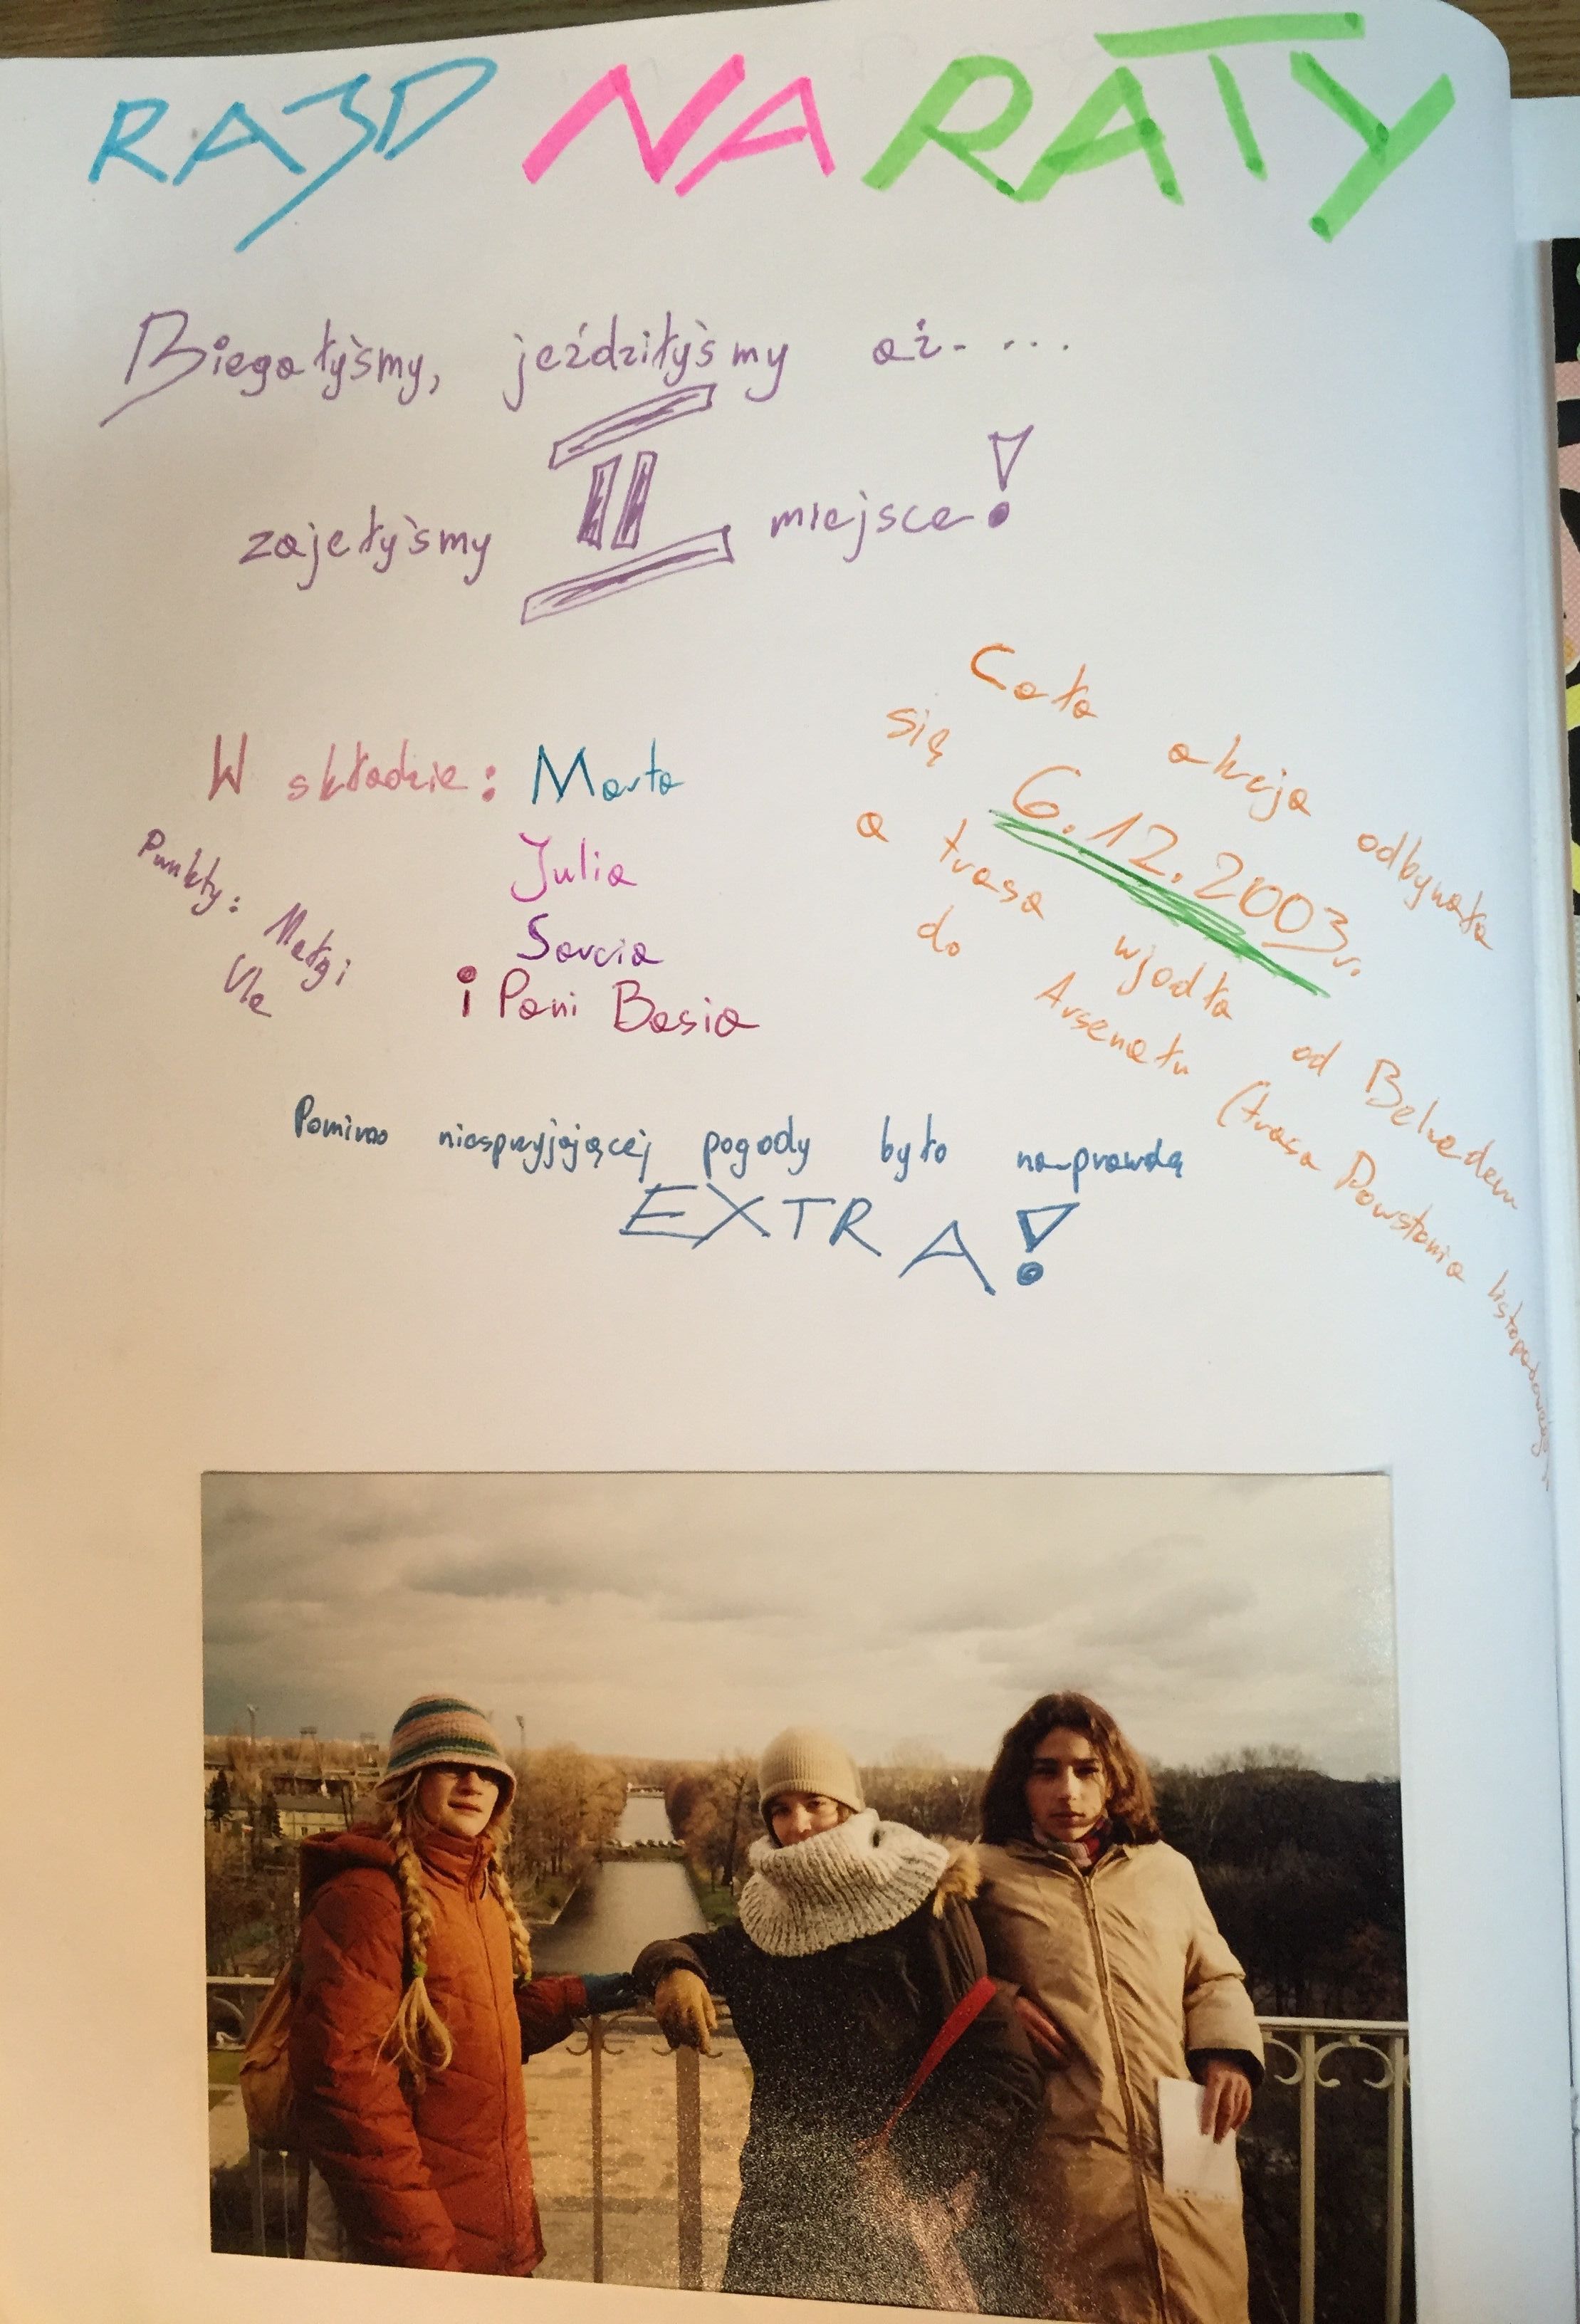 RAJD NA RATY
Biegałyśmy, jeździłyśmy aż- ...
zajełyśmy II miejsce!
W składzie: Marta
Julia
Sarcia
i Pani Basia
Punkty: Małgi
Ula
Cała akcja odbywała
się 6.12.2003r.
a trasa wjodła od Belwederu
do Arsenału (trasa Powstania listopadowego)
Pomimo niesprzyjającej pogody było na-prawdą
EXTRA!